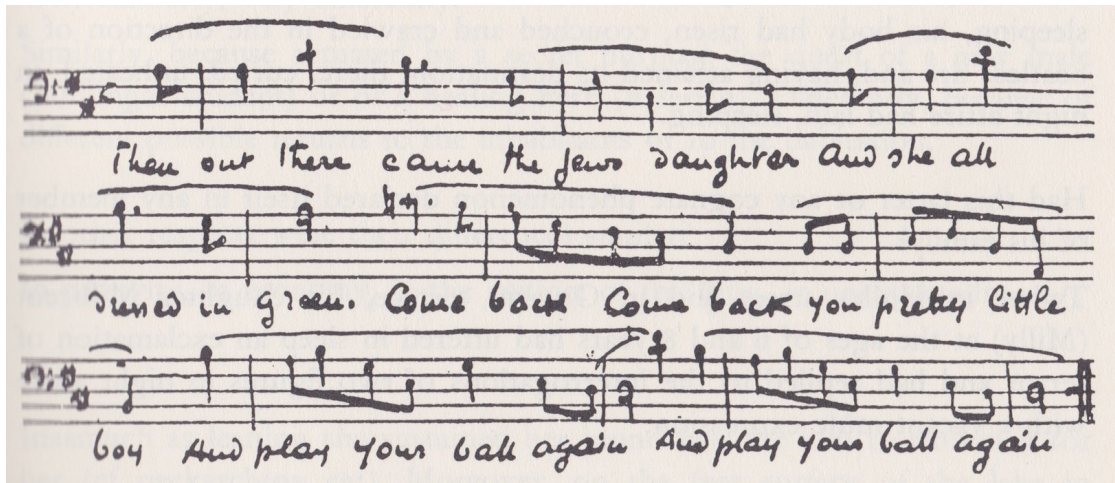 Then out there came the jew's daughter and she all
dressed in green. Come back Come back you pretty little
boy And play your ball again And play your ball again